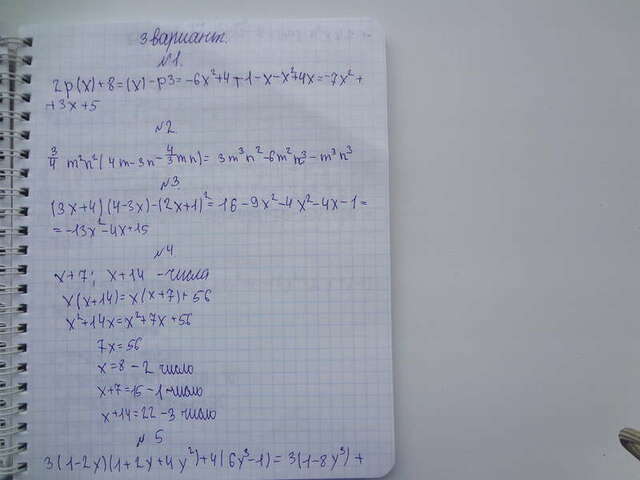 3 вариант.
№1.
2p(x)+8=(x)-p3=-6x²+4+1-x-x²+4x=-7x²+
+3x+5
№2
3/4 m²n²(4m-3n-4/3mn)=3m³n²-6m²n³-m³n³
№3.
(3x+4)(4-3x)-(2x+1)²=16-9x²-4x²-4x-1=
=-13x²-4x+15
№4
x+7; x+14 - числа
x(x+14)=x(x+7)+56
x²+14x=x²+7x+56
7x=56
x=8 - 2 число
x+7=15 - 1 число
x+14=22 - 3 число
№5
3(1-2y)(1+2y+4y²)+4(6y³-1)=3(1-8y³)+